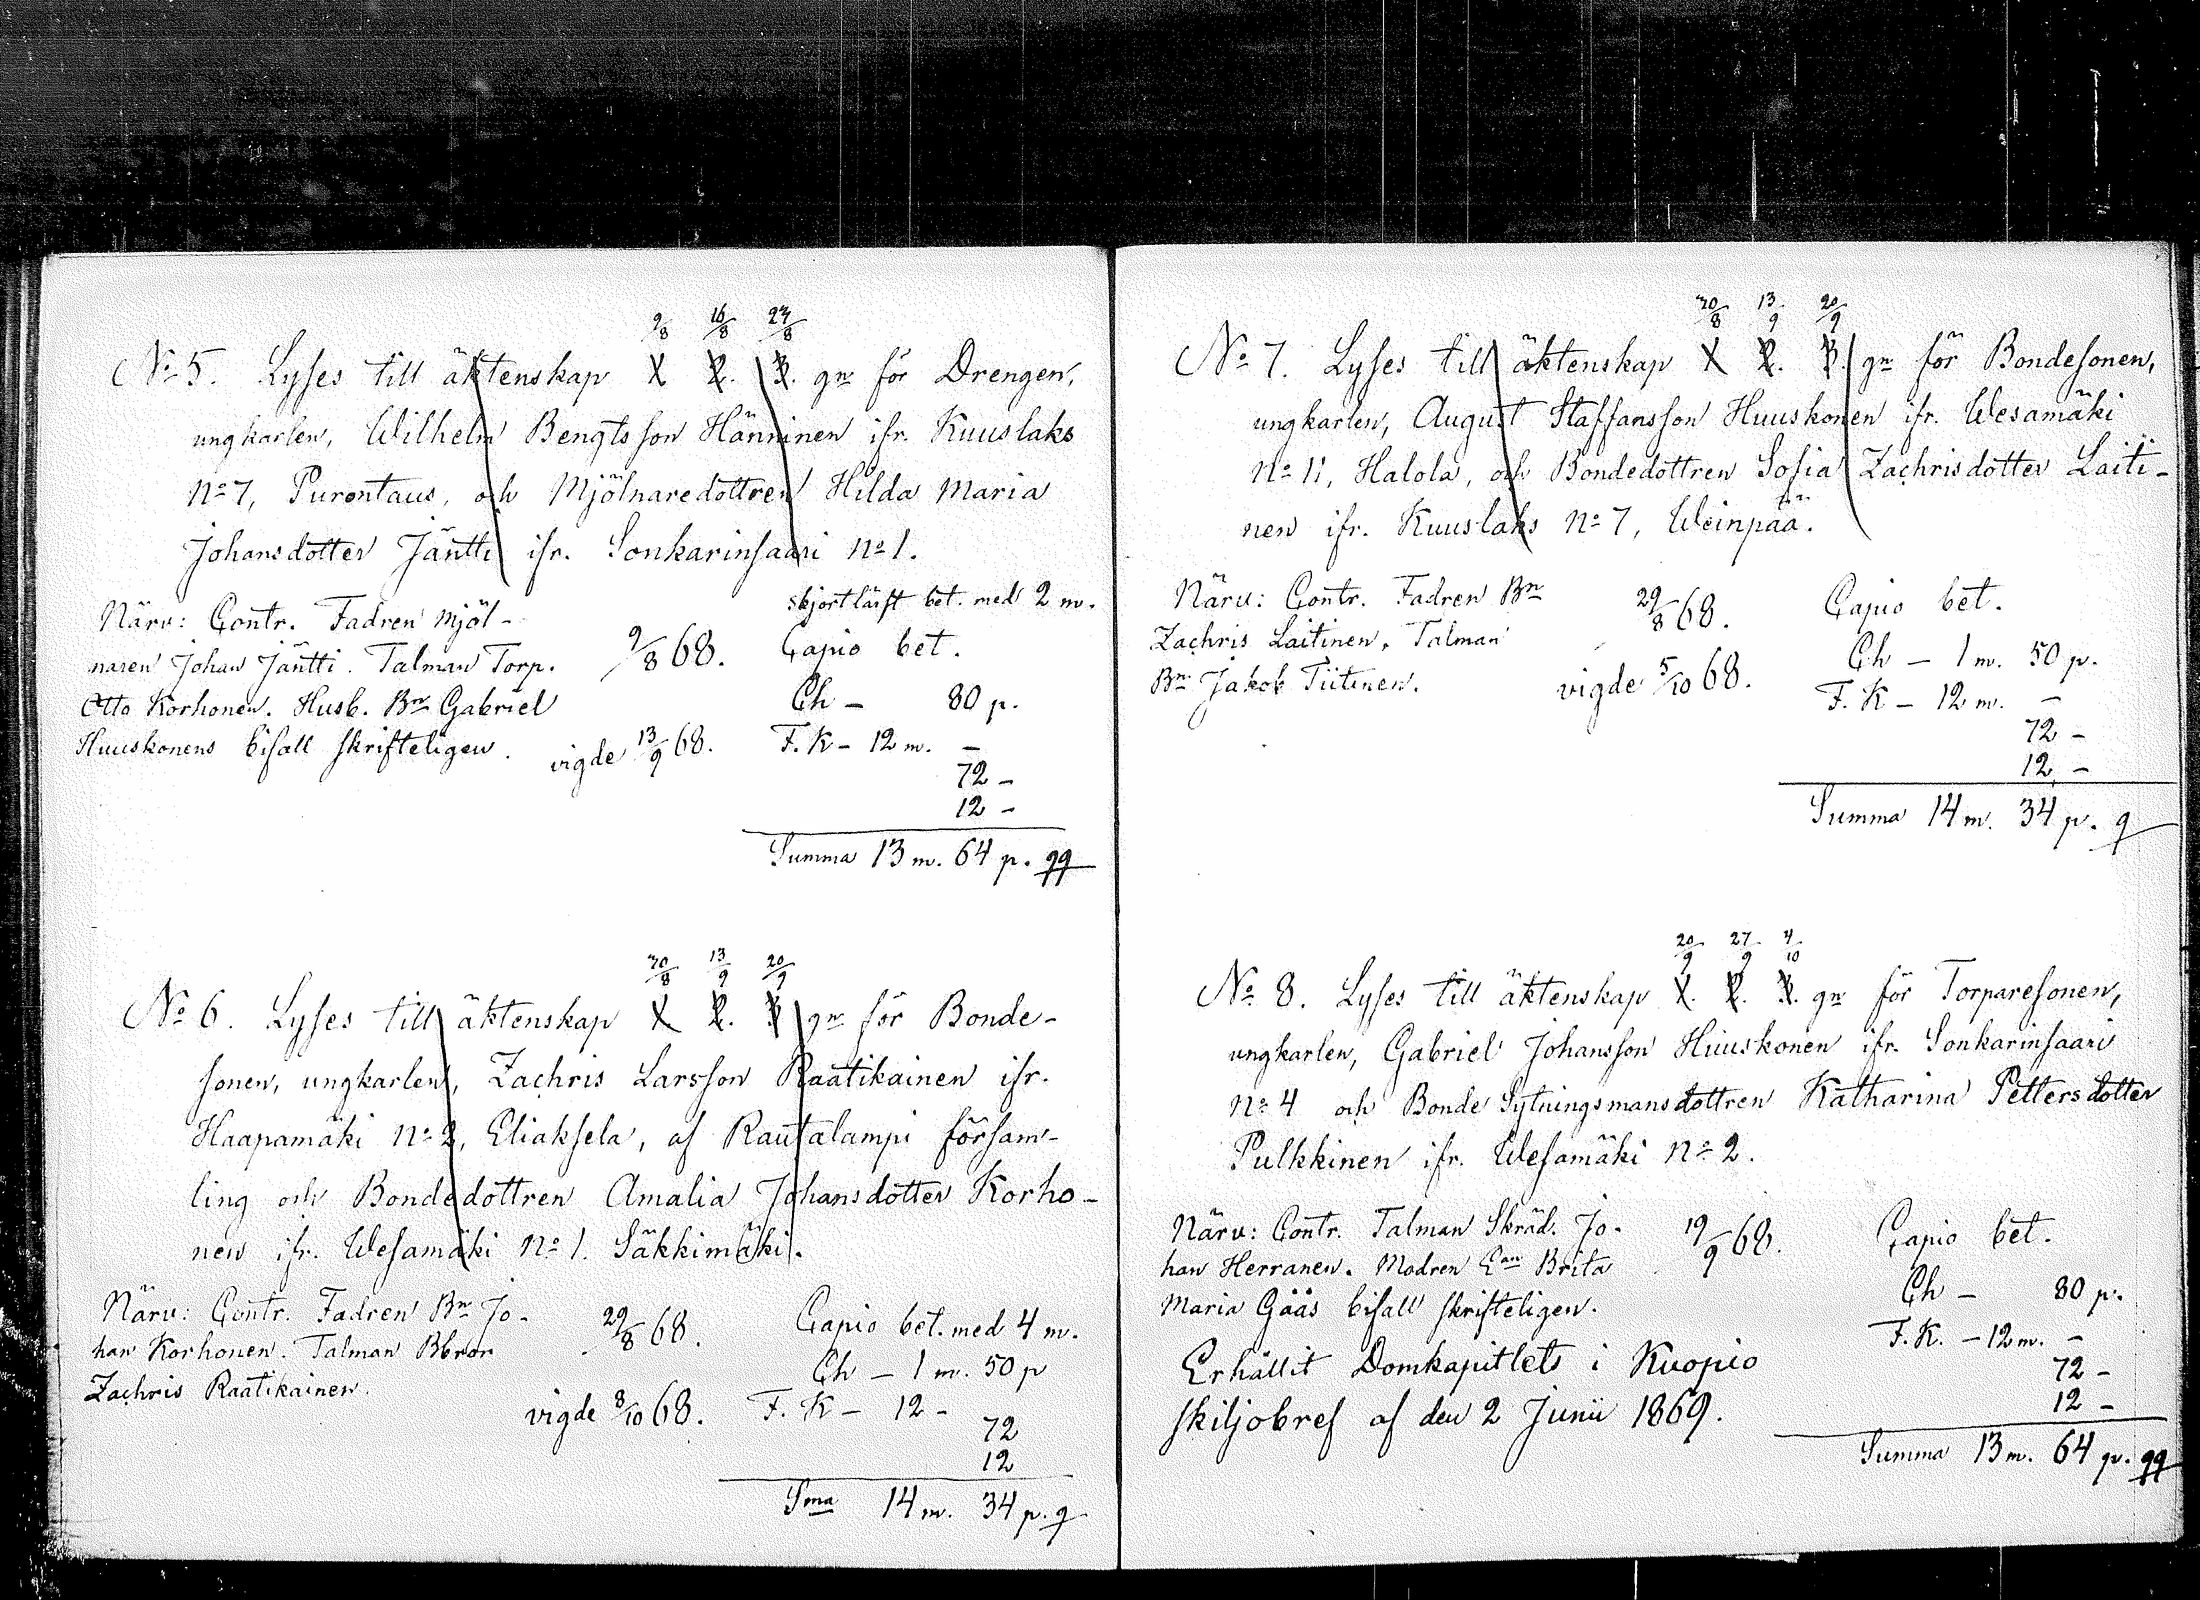 9/8 16/8 23/8
No 5. Lyses till äktenskap 1. 2. 3. gn för Drengen,
ungkarlen, Wilhelm Bengtsson Hänninen ifr. Kuuslaks
No 7, Purontaus, och Mjölnaredottren Hilda Maria
Johansdotter Jäntti ifr. Sonkarinsaari No 1.
Närv: Contr. Fadren Mjöl-
naren Johan Jäntti. Talman Torp.
Otto Korhonen. Husb. Bn Gabriel
Huuskonens bifall skrifteligen.
9/8 68.
vigde 13/9 68.
skjortlärft bet. med 2 m.
Capio bet.
Ch - 80 p.
F. K - 12 m. -
72 -
12 -
Summa 13 m. 64 p. qq
30/8 13/9 20/9
No 6. Lyses till äktenskap 1. 2. 3. gn för Bonde-
sonen, ungkarlen, Zachris Larsson Raatikainen ifr.
Haapamäki No 2, Eliaksela, af Rautalampi försam-
ling och Bondedottren Amalia Johansdotter Korho-
nen ifr. Wesamäki No 1. Säkkimäki.
Närv: Contr. Fadren Bn Jo-
han Korhonen. Talman Bbror
Zachris Raatikainen.
29/8 68.
vigde 8/10 68.
Capio bet. med 4 m.
Ch - 1 m. 50 p
F. K - 12 -
72
12
Sma 14 m. 34 p. q
30/8 13/9 20/9
No 7. Lyses till äktenskap 1 2. 3. gn för Bondesonen,
ungkarlen, August Staffansson Huuskonen ifr. Wesamäki
No 11, Halola, och Bondedottren Sofia Zachrisdotter Laiti-
nen ifr. Kuuslaks No 7, Weinpää.
Närv: Contr. Fadren Bn
Zachris Laitinen. Talman
Bn Jakob Tiitinen.
29/8 68.
vigde 5/10 68.
Capio bet.
Ch - 1 m. 50 p.
F. K - 12 m. -
72 -
12 -
Summa 14 m. 34 p. q
20/9 27/9 4/10
No 8. Lyses till äktenskap 1. 2. 3. gn för Torparesonen,
ungkarlen, Gabriel Johansson Huuskonen ifr. Sonkarinsaari
No 4 och Bonde Sytningsmansdottren Katharina Pettersdotter
Pulkkinen ifr. Wesamäki No 2.
Närv: Contr. Talman Skräd. Jo-
han Herranen. Modren Ean Brita
Maria Gåås bifall skrifteligen.
19/9 68.
Erhållit Domkapitlets i Kuopio
skiljobref af den 2 Junii 1869.
Capio bet.
Ch - 80 p.
F. K. - 12 m. -
72 -
12 -
Summa 13 m. 64 p. qq